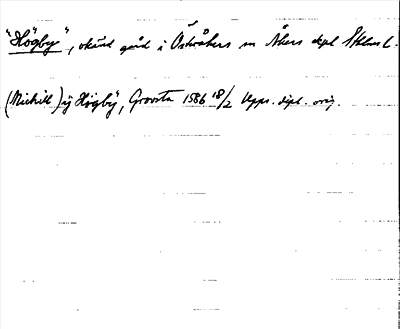 "Högby", okänd gård i Österåkers sn Åkers skpl Sthlms l.
(Mickill) ij Högbÿ, Groosta 1586 18/2 Upps. dipl. orig.